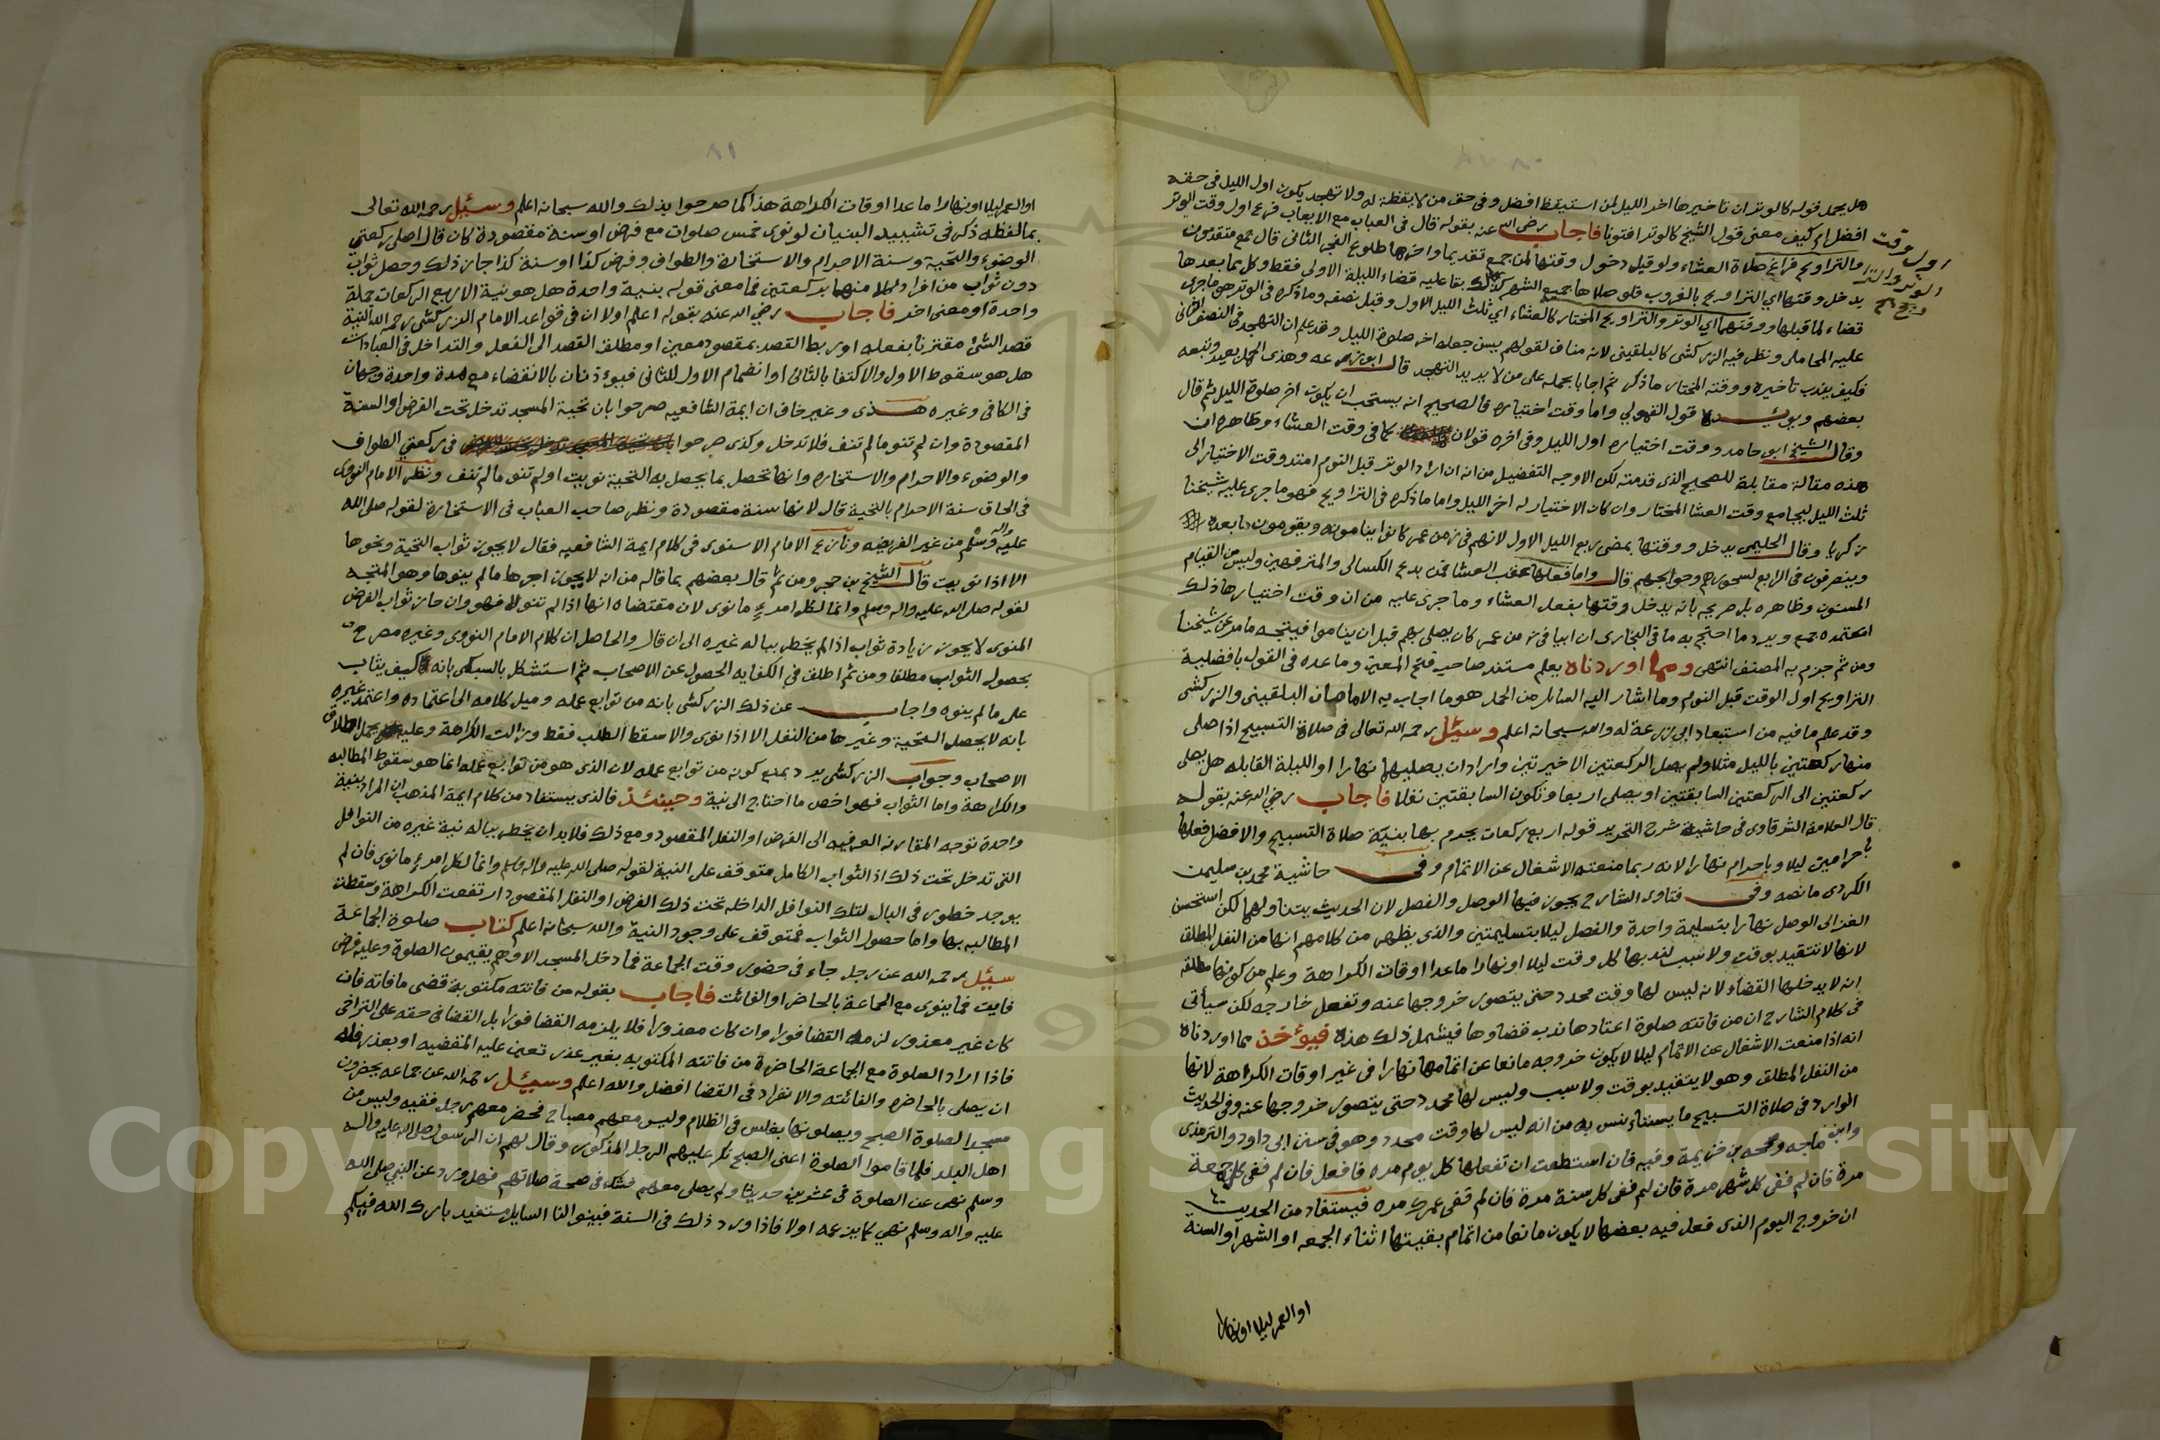 هل يحمل قوله كالوتر ان تاخيرها اخر الليل لمن استيقظ افضل وفي حق من لا يقظة له ولا تهجد يكون اول الليل في حقه
افضل ام كيف معنى قول الشيخ كالوتر افتونا فاجاب رضي الله عنه بقوله قال في العباب مع الايعاب فرع اول وقت الوتر
والتراويح فراغ صلاة العشاء ولو قبل دخول وقتها لمن جمع تقديما واخرها طلوع الفجر الثاني قال جمع متقدمون
يدخل وقتها اي التراويح بالغروب فلو صلاها جميع الشهر كذلك بقا عليه قضاء الليلة الاولى فقط وكل بما بعدها
قضاء لما قبلها ووقتهما اي الوتر والتراويح المختار كالعشاء اي ثلث الليل الاول وقيل نصفه وما ذكره في الوتر هو ما جرى
عليه المحاملي ونظر فيه الزركشي كالبلقيني لانه مناف لقولهم يسن جعله اخر صلوة الليل وقد علم ان التهجد في النصف الثاني
فكيف يندب تاخيره ووقته المختار ما ذكر ثم اجابا بحمله على من لا يريد التهجد قال ابو زرعه وهذا الحمل بعيد وتبعه
بعضهم ويويده قول الفهولي واما وقت اختياره فالصحيح انه يستحب ان يكون اخر صلوة الليل ثم قال
وقال الشيخ ابو حامد ووقت اختياره اول الليل وفي اخره قولان كما في وقت العشاء وظاهره ان
هذه مقالة مقابلة للصحيح الذي قدمته لكن الاوجه التفضيل من انه ان اراد الوتر قبل النوم امتد وقت الاختيار الى
ثلث الليل ليجامع وقت العشا المختار وان كان الاختيار له اخر الليل واما ما ذكره في التراويح فهو ما جرى عليه شيخنا
زكريا وقال الحليمي يدخل ووقتها بمضى ربع الليل الاول لانهم في زمن عمر كانوا ينامونه ويقومون ما بعده
وينصرفون في الرابع لسحورهم وحوايجهم قال واما فعلها عقب العشا فمن بدع الكسالى والمترفهين وليس من القيام
المسنون وظاهره بل صريحه بانه يدخل وقتها بفعل العشاء وما جرى عليه من ان وقت اختيارها ذلك
اعتمده جمع ويرد ما احتج به ما في البخاري ان ابيا في زمن عمر كان يصلي بهم قبل ان يناموا فيتجه ما مر عن شيخنا
ومن ثم جزم به المصنف انتهى ومما اوردناه يعلم مستند صاحب فتح المعين وما عده في القول بافضلية
التراويح اول الوقت قبل النوم وما اشار اليه السائل من الحمل هو ما اجاب به الامامان البلقيني والزركشي
وقد علم ما فيه من استبعاد ابي زرعة له والله سبحانه اعلم وسئل رحمه الله تعالى في صلاة التسبيح اذا صلى
منها ركعتين بالليل مثلا ولم يصل الركعتين الاخيرتين واراد ان يصليها نهارا او الليلة القابله هل يصلي
ركعتين الى الركعتين السابقتين او يصلي اربعا وتكون السابقتين نفلا فاجاب رضي الله عنه بقوله
قال العلامة الشرقاوي في حاشية شرح التحرير قوله اربع ركعات يحرم بها بنية صلاة التسبيح والافضل فعلها
باحرامين ليلا وباحرام نهارا لانه ربما منعته الاشغال عن الاتمام وفي حاشية محمد بن سليمن
الكردي ما نصه وفي فتاوى الشارح يجوز فيها الوصل والفصل لان الحديث يتناولهما لكن استحسن
الغزالي الوصل نهارا بتسليمة واحدة والفصل ليلا بتسليمتين والذي يظهر من كلامهم انها من النفل المطلق
لانها لا تتقيد بوقت ولا سبب لندبها كل وقت ليلا او نهارا ما عدا اوقات الكراهة وعلم من كونها مطلقه
انه لا يدخلها القضاء لانه ليس لها وقت محدد حتى يتصور خروجها عنه وتفعل خارجه لكن سيأتي
في كلام الشارح ان من فاتته صلوة اعتادها ندب قضاوها فيشمل ذلك هذه فيوخذ مما اوردناه
انه اذا منعت الاشغال عن الاتمام ليلا لا يكون خروجه مانعا عن اتمامها نهارا في غير اوقات الكراهة لانها
من النفل المطلق وهو لا يتقيد بوقت ولا سبب وليس لها محدد حتى يتصور خروجها عنه وفي الحديث
الوارد في صلاة التسبيح ما يستانس به من انه ليس لها وقت محدد وهو في سنن ابي داود والترمذي
وابن ماجه وصححه بن خزيمة وفيه فان استطعت ان تفعلها كل يوم مره فافعل فان لم ففي كل جمعة
مرة فان لم ففي كل شهر مرة فان لم ففي كل سنة مرة فان لم ففي عمرك مره فيستفاد من الحديث
ان خروج اليوم الذي فعل فيه بعضها لا يكون مانعا من اتمام بقيتها اثناء الجمعه او الشهر او السنة
او العمر ليلا او نهارا
اول وقت
الوتر والترا
ويح
٨١
او العمر ليلا او نهارا ما عدا اوقات الكراهة هذا كما صرحوا بذلك والله سبحانه اعلم وسئل رحمه الله تعالى
بما لفظه ذكر في تشييد البنيان لو نوى خمس صلوات مع فرض او سنة مقصودة كان قال اصلي ركعتي
الوضوء والتحية وسنة الاحرام والاستخارة والطواف وفرض كذا او سنة كذا جاز ذلك وحصل ثواب
دون ثواب من افراد كلا منها بركعتين فما معنى قوله بنية واحدة هل هو نية الاربع الركعات جملة
واحدة او معنى اخر فاجاب رضي الله عنه بقوله اعلم اولا ان في قواعد الامام الزركشي رحمه الله النية
قصد الشئ مقترنا بفعله او ربط القصد بمقصود معين او مطلق القصد الى الفعل والتداخل في العبادات
هل هو سقوط الاول والاكتفا بالثاني او انضمام الاول للثاني فيوذنان بالانقضاء مع مدة واحدة وجهان
في الكافي وغيره هذى وغير خاف ان ايمة الشافعيه صرحوا بان تحية المسجد تدخل تحت الفرض او السنة
المقصودة وان لم تنو ما لم تنف فلا تدخل وكذى صرحوا في ركعتي الطواف
والوضوء والاحرام والاستخاره وانها تحصل بما يحصل به التحية نويت او لم تنو ما لم تنف ونظر الامام النووي
في الحاق سنة الاحرام بالتحية قال لانها سنة مقصودة ونظر صاحب العباب في الاستخارة لقوله صلى الله
عليه واله وسلم من غير الفريضه ونازع الامام الاسنوي في كلام ايمة الشافعيه فقال لا يجوز ثواب التحية ونحوها
الا اذا نويت قال الشيخ بن حجر ومن ثم قال بعضهم بما قاله من انه لا يجوز اجرها ما لم ينوها وهو المتجه
لقوله صلى الله عليه واله وسلم وانما لكل امرئ ما نوى لان مقتضاه انها اذا لم تنو له فهو وان حاز ثواب الفرض
المنوي لا يجوز زيادة ثواب اذا لم يخطر بباله غيره الى ان قال والحاصل ان كلام الامام النووي وغيره مصرح
بحصول الثواب مطلقا ومن ثم اطلق في الكفايه الحصول عن الاصحاب ثم استشكل بالسبكي بانه كيف يثاب
على ما لم ينوه واجاب عن ذلك الزركشي بانه من توابع عمله وميل كلامه الى اعتماده واعتمد غيره
بانه لا يحصل التحية وغيرها من النفل الا اذا نوى والا سقط الطلب فقط وزالت الكراهة وعليه يحمل اطلاق
الاصحاب وجواب الزركشي يرد بمنع كونه من توابع عمله لان الذي هو من توابع عمله انما هو سقوط المطالبه
والكراهة واما الثواب فهو اخص ما احتاج الى نية وحينئذ فالذي يستفاد من كلام ايمة المذهب ان المراد بنية
واحدة توجه المقارنه العرفيه الى الفرض او النفل المقصود ومع ذلك فلا بد ان يخطر بباله نية غيره من النوافل
التي تدخل تحت ذلك اذ الثواب الكامل متوقف على النية لقوله صلى الله عليه واله وسلم وانما لكل امرئ ما نوى فان لم
يوجد خطور في البال لتلك النوافل الداخله تحت ذلك الفرض او النفل المقصود ارتفعت الكراهة وسقطت
المطالبه بها واما حصول الثواب فمتوقف على وجود النية والله سبحانه اعلم كتاب صلوة الجماعة
سئل رحمه الله عن رجل جاء في حضور وقت الجماعة فما دخل المسجد الا وهم يقيمون الصلوة وعليه فرض
فايت فما ينوي مع الجماعة بالحاضر او الفائت فاجاب بقوله من فاتته مكتوبة قضى ما فاته فان
كان غير معذور لزمه القضا فورا وان كان معذورا فلا يلزمه القضا فورا بل القضا في حقه على التراخي
فاذا اراد الصلوة مع الجماعة الحاضرة من فاتته المكتوبه بغير عذر تعين عليه المقضيه او بعذر فله
ان يصلي بالحاضره والفائته والانفراد في القضا افضل والله اعلم وسئل رحمه الله عن جماعه يحضرون
مسجدا لصلوة الصبح ويصلونها بغلس في الظلام وليس معهم مصباح فحضر معهم رجل فقيه وليس من
اهل البلد فلما قاموا الصلوة اعنى الصبح نكر عليهم الرجل المذكور وقال لهم ان الرسول صلى الله عليه واله
وسلم نهى عن الصلوة في عشرين حديثا ولم يصلي معهم فشك في صحة صلاتهم فهل ورد عن النبي صلى الله
عليه واله وسلم نهي كما يزعمه اولا فاذا ورد ذلك في السنة فبينوا لنا السايل مستفيد بارك الله فيكم
Copyright © King Saud University